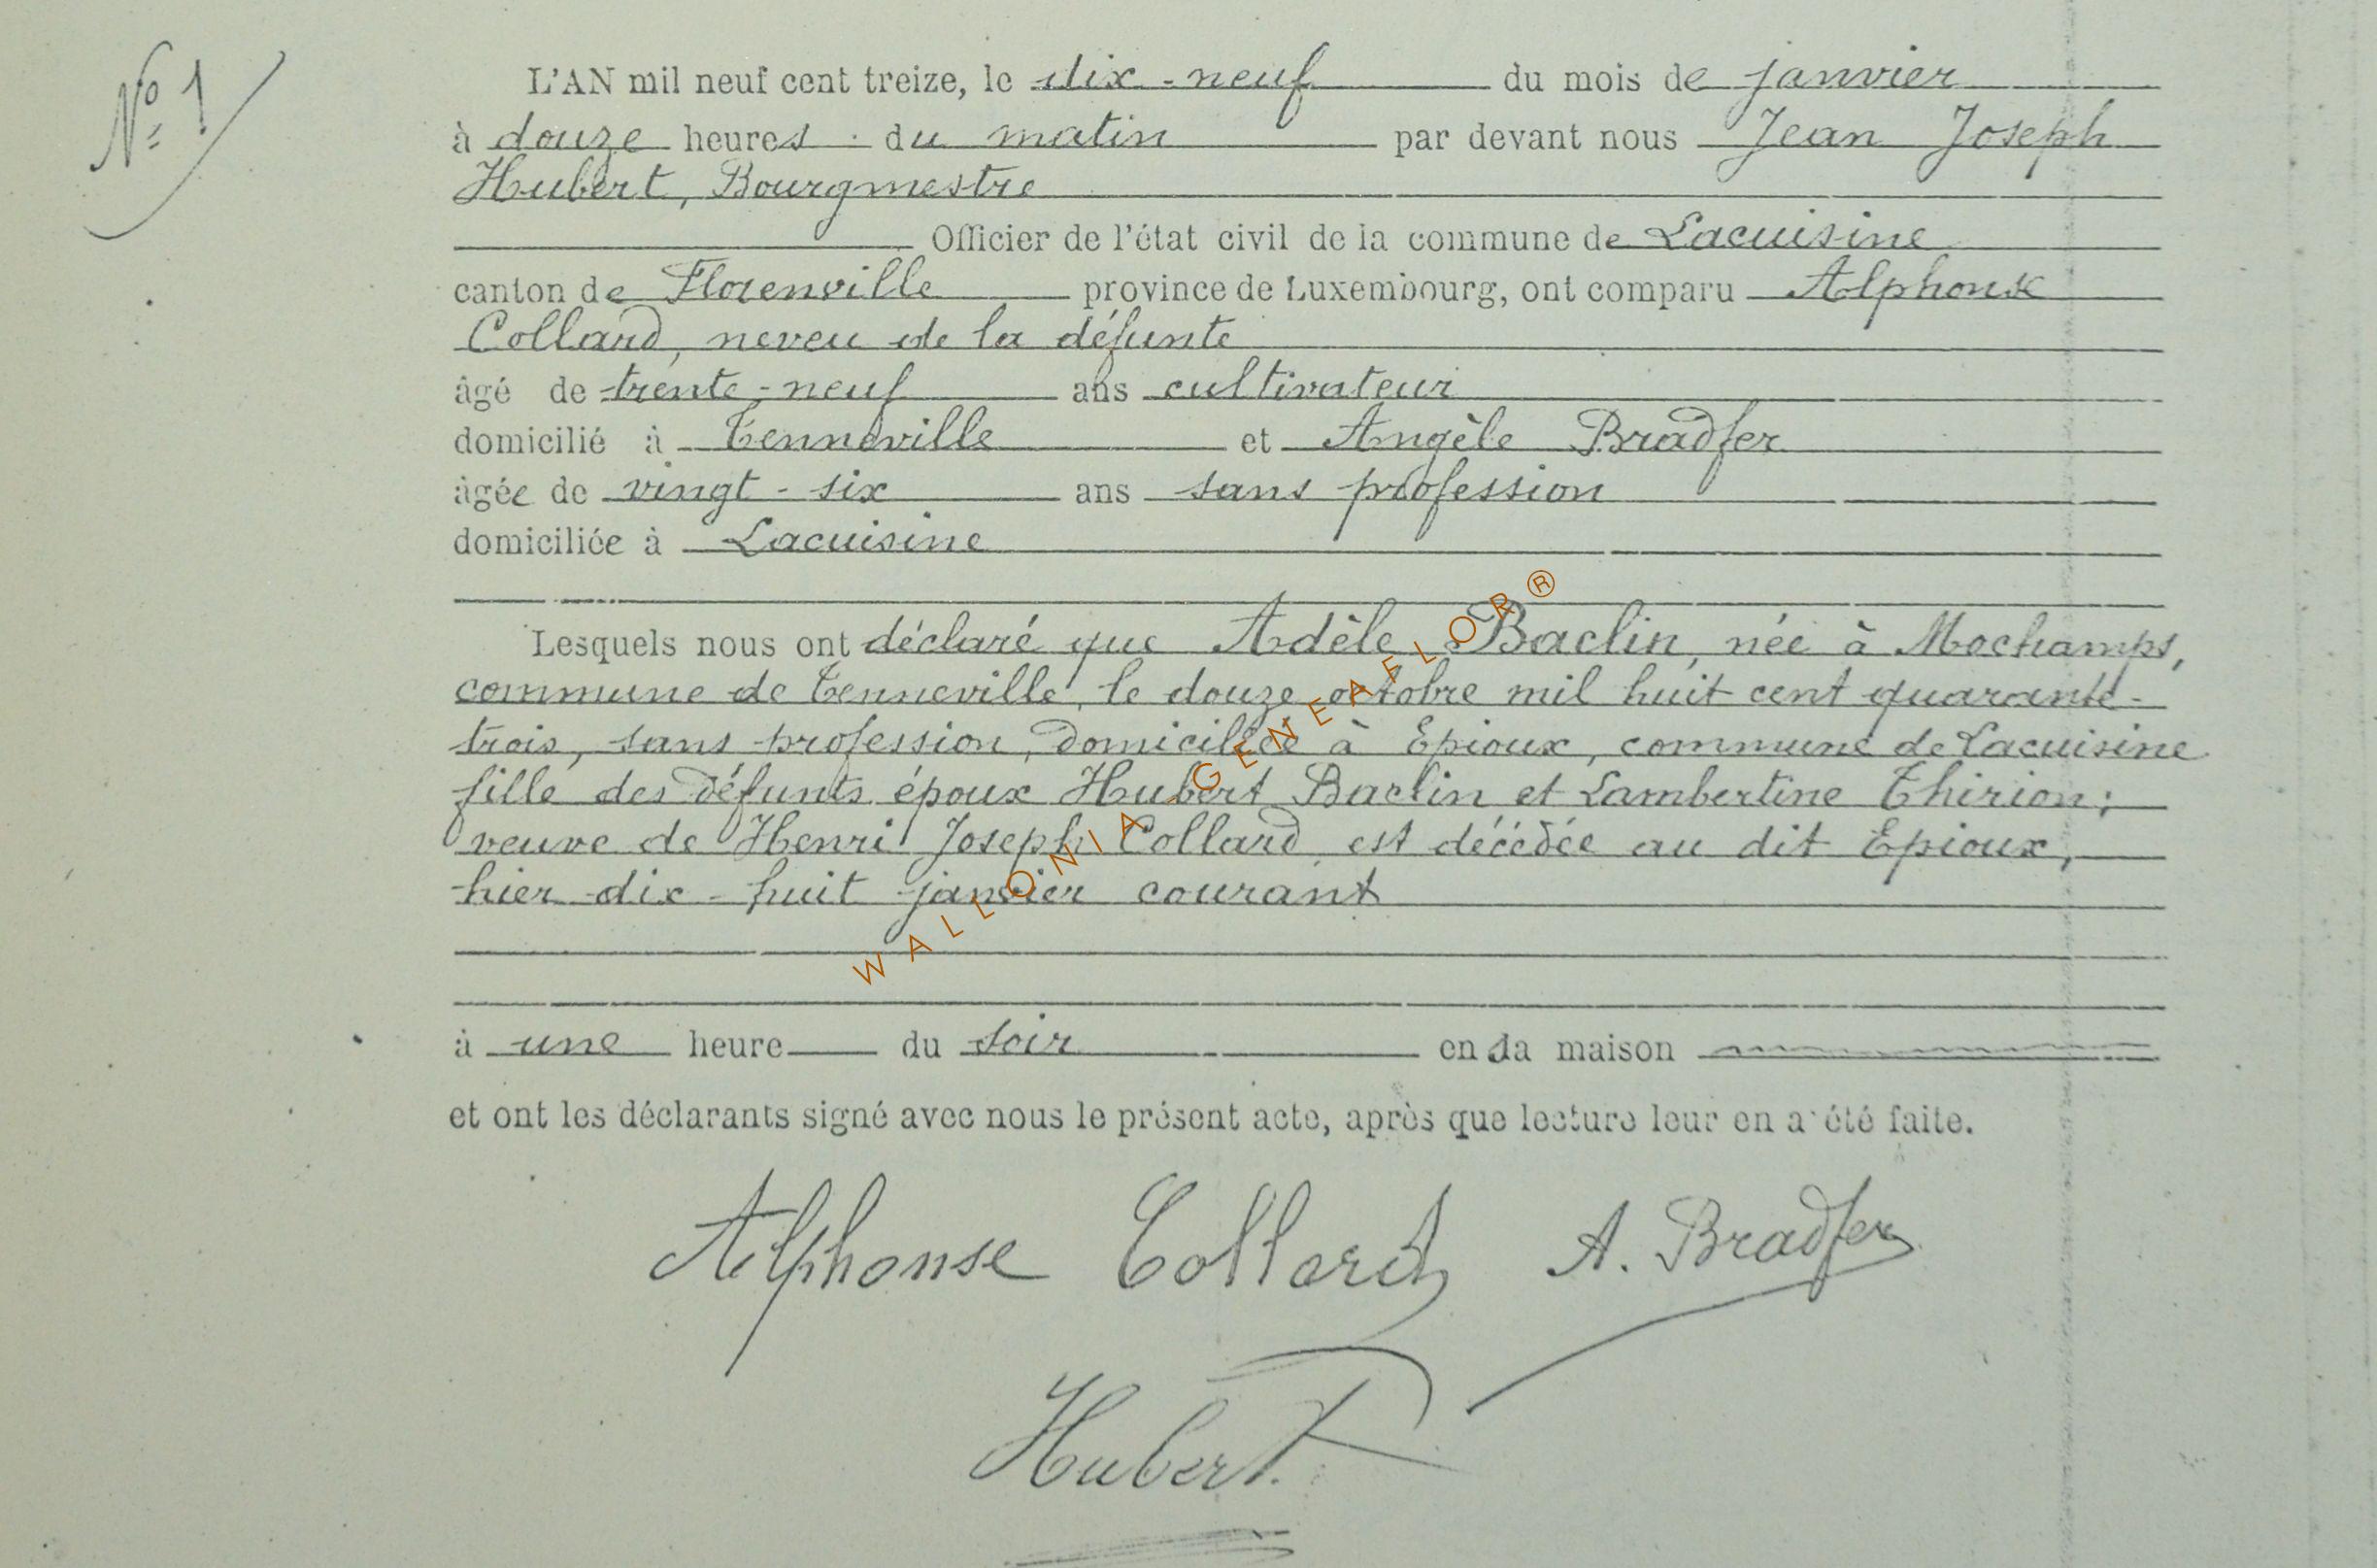 Nº 1
L'AN mil neuf cent treize, le dix-neuf du mois de janvier
à douze heures du matin par devant nous Jean Joseph
Hubert, Bourgmestre
Officier de l'état civil de la commune de Lacuisine
canton de Florenville province de Luxembourg, ont comparu Alphonse
Collard, neveu de la défunte
âgé de trente-neuf ans cultivateur
domicilié à Tenneville et Angèle Bradfer
âgée de vingt-six ans sans profession
domiciliée à Lacuisine
Lesquels nous ont déclaré que Adèle Baclin, née à Mochamps,
commune de Tenneville, le douze octobre mil huit cent quarante-
trois, sans profession, domiciliée à Epioux, commune de Lacuisine
fille des défunts époux Hubert Baclin et Lambertine Thirion;
veuve de Henri Joseph Collard, est décédée au dit Epioux,
hier dix-huit janvier courant
à une heure du soir en sa maison
et ont les déclarants signé avec nous le présent acte, après que lecture leur en a été faite.
Alphonse Collard A. Bradfer
Hubert
WALLONIA GENEAFLOR®